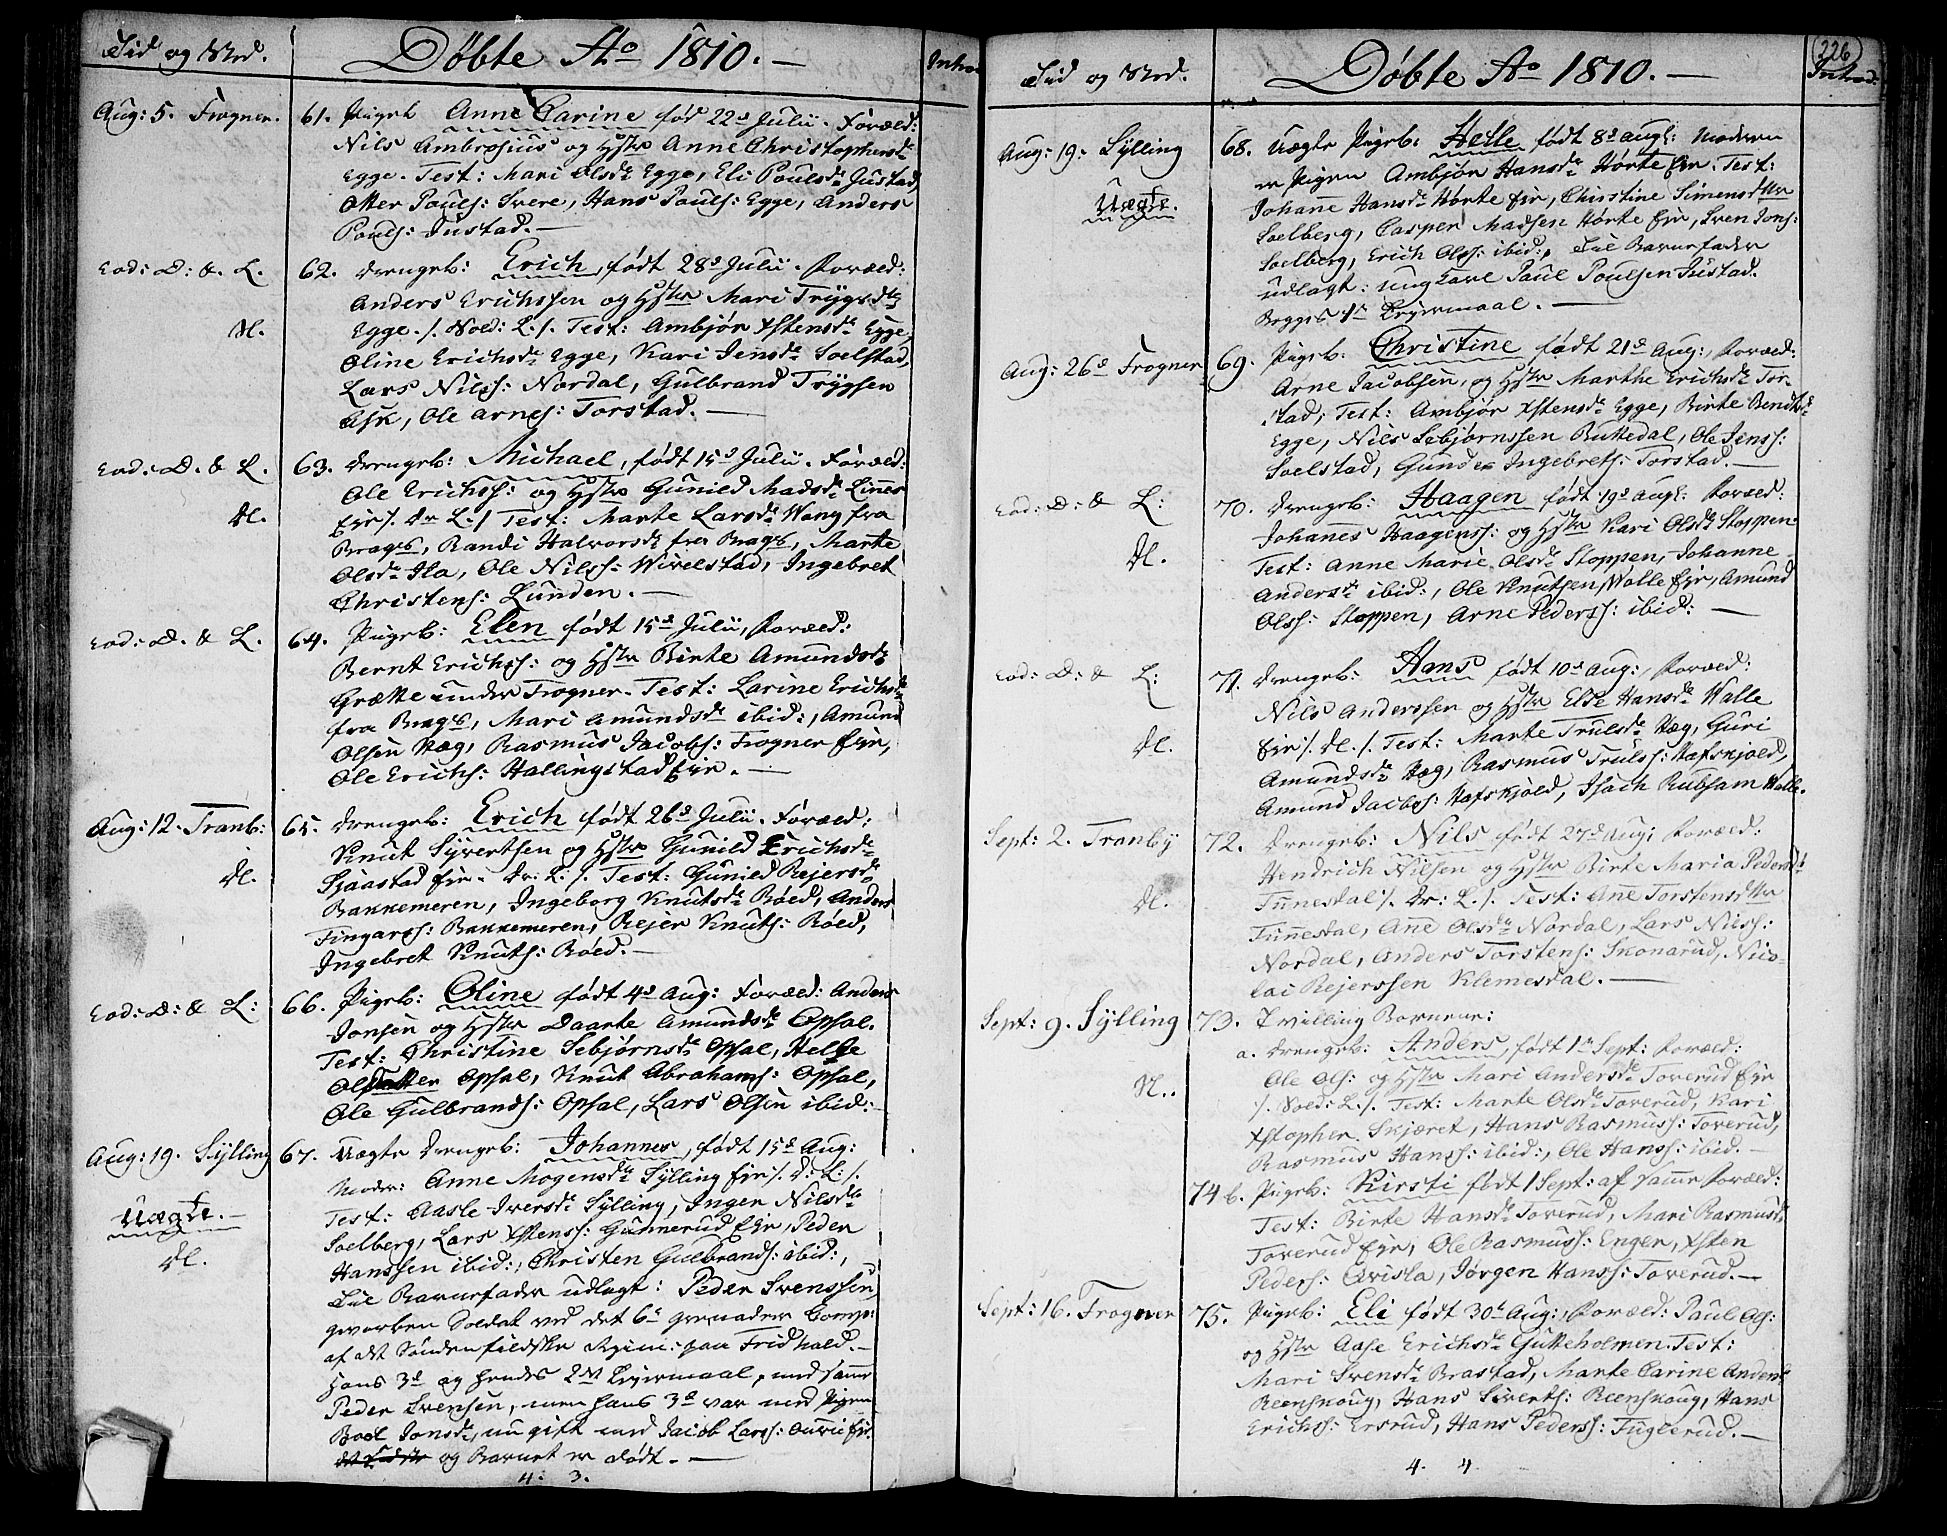 Tid og Sted.
Døbte Ao 1810. —
Aug: 5. Frogner.
61. Pigeb. Anne Carine fød 22d Julii. Foræld:
Nils Ambrosius og Hstr Anne Christophersdr
Egge. Test: Mari Olsdr Egge, Eli Poulsdr Justad,
Otter Pouls: Svere, Hans Pouls: Egge, Anders
Pouls: Justad. —
Eod: D: &. L.
62. Drengeb: Erich, født 28d Julii. Foræld:
Anders Erichssen og Hstr Mari Trygsdr
N.
Egge ./. Noed: L./. Test: Ambjør Xstensdr Egge,
Oline Erichsdr Egge, Kari Jensdr Soelstad,
Lars Nilss: Nordal, Gulbrand Trygsen
Ask, Ole Arnes: Torstad. —
Eod: D. & L.
63. Drengeb: Michael, født 15d Julii. Foræld:
Ole Erichss: og Hstr Gunild Madsdr Linnes
Dl.
Ejr ./. Dr L./ Test: Marte Larsdr Wang fra
Brags, Randi Halvorsdr fra Brags, Marte
Olsdr Ila, Ole Nilss: Wivelstad, Ingebret
Christens: Lunden. —
Eod: D. & L.
64. Pigeb: Elen født 15d Julii, Foræld:
Bernt Erichss: og Hstr Birte Amundsdr
Grætte under Frogner. Test: Larine Erichsdr
fra Brags, Mari Amundsdr ibid:, Amund
Olsen Hæg, Rasmus Jacobs: Frogner Ejr,
Ole Erichs: Hallingstad Ejr. —
Aug: 12. Tranb:
65. Drengeb: Erich født 26d Julii. Foræld:
Knut Syvertsen og Hstr Gunild Erichsdr
Dl.
Sjaastad Ejr. Dr: L./. Test: Gunild Rejersdr
Bakkemeren, Ingeborg Knutsdr Røed, Anders
Fingarss: Bakkemeren, Rejer Knuts: Røed,
Ingebret Knuts: Røed. —
Eod: D: & L:
66. Pigeb: Oline født 4d Aug: Foræld: Anders
Jonsen og Hstr Daarte Amundsdr Opsal.
Test: Christine Sebjørnsdr Opsal, Helle
Olsdatter Opsal, Knut Abrahams: Opsal,
Ole Gulbrands: Opsal, Lars Olsen ibid:
Aug: 19. Sylling
67. Uægte Drengeb: Johannes, født 15d Aug:
Moder: Anne Mogensdr Sylling Ejr ./. D: L:/.
Uægte. —
Test: Aasle Iversdr Sylling, Inger Nilsdr
Soelberg, Lars Xstenss: Gunnerud Ejr, Peder
Dl.
Hanssen ibid:, Christen Gulbrands: ibid:,
Til Barnefader udlagt: Peder Svenssen,
gevorben Soldat ved det 6te Grenader Comp:
af det Søndenfieldske Regim: paa Fridhald. —
Hans 3d og hendes 2det Leyermaal, med samme
Peder Svensen, men hans 3d var med Pigen
Boel Jonsdr, nu gift med Jacob Larss:
og Barnet er dødt. —
4. 3.
Tid og Sted.
Døbte Ao 1810. —
226
Aug: 19. Sylling
68. Uægte Pigeb. Helle født 8d Augl: Moderen
er Pigen Ambjør Hansdr Hørte Ejr. Test:
Uægte.
Johanne Hansdr Hørte Ejr, Christine Simensdtter
Soelberg, Casper Madsen Hørte Ejr, Sven Jons:
Soelberg, Erich Olss: ibid:, Til Barnefader
udlagt: ungkarl Paul Poulsen Justad.
Begges 1te Leyermaal. —
Aug: 26d Frogner
69. Pigeb: Christine født 21d Aug:, Foræld:
Arne Jacobsen, og Hstr Marthe Erichsdr Tor-
stad, Test: Ambjør Xstensdr Egge, Birte Bendtsdr
Egge, Nils Sebjørnssen Buttedal, Ole Jenss:
Soelstad, Gunder Ingebrets: Torstad. —
Eod: D: & L:
70. Drengeb: Haagen født 19d Augl: Foræld:
Johanes Haagenss: og Hstr Kari Olsdr Stoppen.
Dl.
Test: Anne Marie Olsdr Stoppen, Johanne
Andersdr ibid:, Ole Knutsen Walle Ejr, Amund
Olss: Stoppen, Arne Pederss: ibid: —
Eod: D: & L:
71. Drengeb: Hans født 10d Aug:, Foræld:
Nils Anderssen og Hstr Else Hansdr Walle
Dl.
Ejr ./. Dl./. Test: Marte Trulsdr Hæg, Guri
Amundsdr Hæg, Rasmus Trulss: Hafskjold,
Amund Jacobs: Hafskjold, Isach Rubsam Walle.
Sept: 2. Tranby
72. Drengeb: Nils født 27d Aug: Foræld:
Hendrich Nilsen og Hstr Birte Maria Pedersdr
Dl.
Tinnesdal ./. Dr: L./. Test: Ane Torstensdtter
Tinnesdal, Ane Olsdr Nordal, Lars Nilss:
Nordal, Anders Torstens: Skonarud, Nico-
lai Rejerssen Klemesdal. —
Sept: 9. Sylling
73. Tvilling Børnene:
a. Drengeb: Anders, født 1te Sept: Foræld:
Ole Ols: og Hstr Mari Andersdr Toverud Ejr
N.
./. Noed: L./. Test: Marte Olsdr Toverud, Kari
Xstopher. Skjæret, Hans Rasmuss: Toverud,
Rasmus Hanss: ibid:, Ole Hanss: ibid. —
74 b. Pigeb: Kirsti født 1 Sept: af samme Foræld:
Test: Birte Hansdr Toverud, Mari Rasmusdr
Toverud Ejr, Ole Rasmuss: Enger, Xsten
Peders: Qvisla, Jørgen Hanss: Toverud. —
Sept: 16. Frogner
75. Pigeb: Eli født 30d Aug:, Foræld: Paul Ols:
og Hstr Aase Erichsdr Gutteholmen. Test:
Mari Svensdr Brastad, Marte Carine Andersdr
Reenskoug, Hans Siverts: Reenskoug, Hans
Erichss: Ersrud, Hans Pederss: Fuglerud. —
4. 4